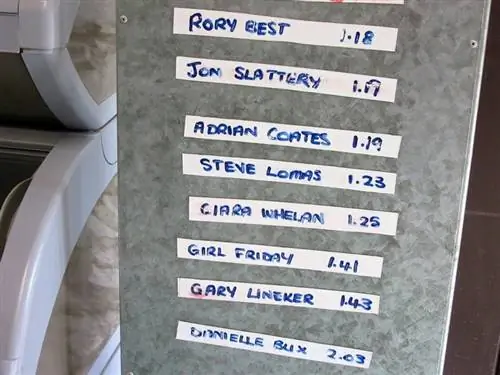 RORY BEST 1.18
JON SLATTERY 1.17
ADRIAN COATES 1.19
STEVE LOMAS 1.23
CIARA WHELAN 1.25
GIRL FRIDAY 1.41
GARY LINEKER 1.43
DANIELLE BUX 2.03